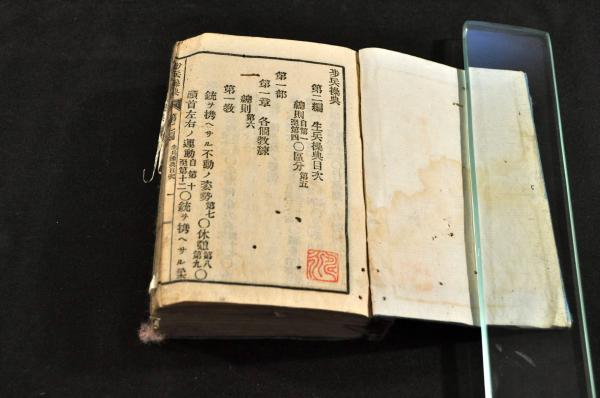 歩兵操典
第二編 生兵操典目次
總則自第一至第四〇區分第五
第一部
第一章 各個教練
一 總則第六
第一教
銃ヲ携ヘサル不動ノ姿勢第七〇休憩第八第九〇
頭首左右ノ運動自第十至第十二〇銃ヲ携ヘサル
歩兵操典
第二編
生兵操典目次
一